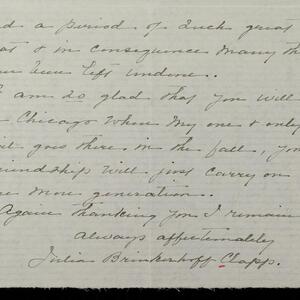 a period of such great
& in consequence many th
been left undone.
I am so glad that you will
Chicago when my one & only
goes there in the fall, you
friendship will just carry on
one more generation.
Again thanking you I remain
always affectionately
Julia Brinkerhoff Clapp.